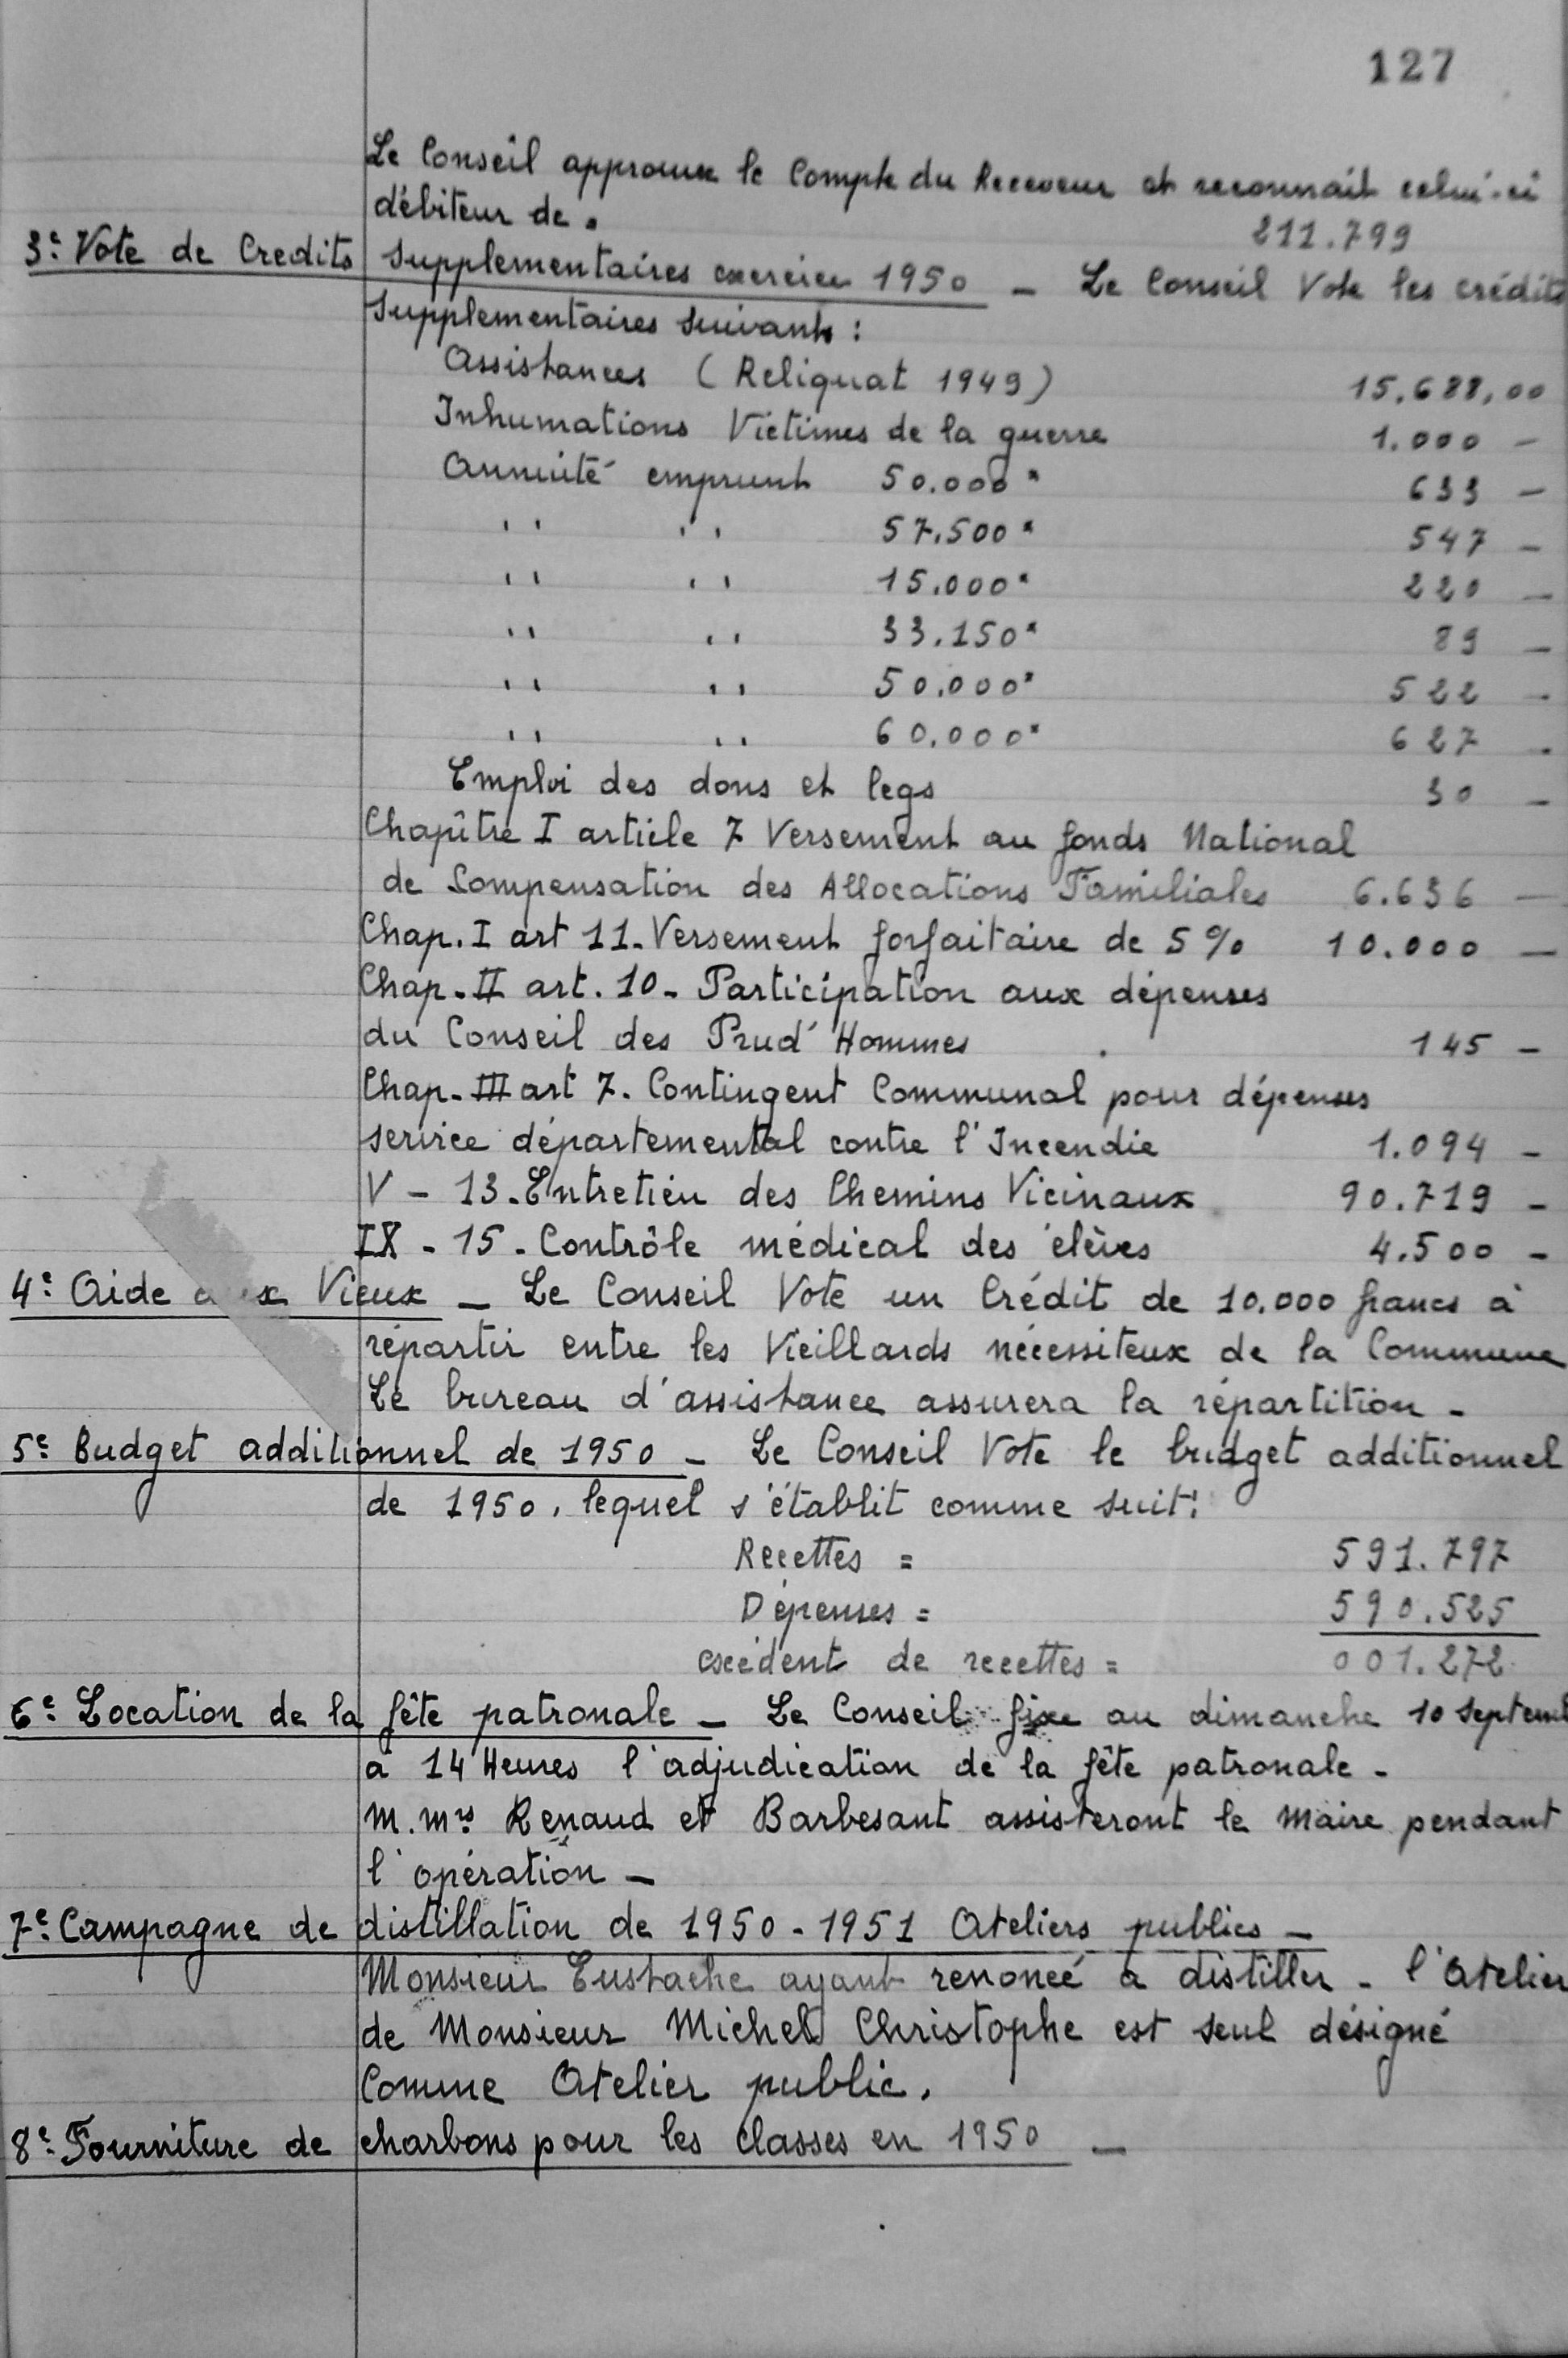 127
Le Conseil approuve le Compte du Receveur et reconnait celui-ci
débiteur de. 211.799
3e: Vote de Credits supplementaires exercice 1950 - Le Conseil Vote les crédits
supplementaires suivants :
Assistances (Reliquat 1949) 15.688,00
Inhumations Victimes de la guerre 1.000 -
Annuité emprunt 50.000" 633 -
" " 57.500" 547 -
" " 15.000" 220 -
" " 33.150" 89 -
" " 50.000" 522 -
" " 60.000" 627 -
Emploi des dons et legs 30 -
Chapître I article 7 Versement au fonds National
de Compensation des Allocations Familiales 6.636 -
Chap. I art 11. Versement forfaitaire de 5% 10.000 -
Chap. II art. 10 - Participation aux dépenses
du Conseil des Prud'Hommes 145 -
Chap. III art 7. Contingent Communal pour dépenses
service départemental contre l'Incendie 1.094 -
V - 13. Entretien des Chemins Vicinaux 90.719 -
IX - 15. Contrôle médical des élèves 4.500 -
4e: Aide aux Vieux - Le Conseil Vote un Crédit de 10.000 francs à
répartir entre les Vieillards nécessiteux de la Commune
Le bureau d'assistance assurera la répartition -
5e: Budget additionnel de 1950 - Le Conseil Vote le budget additionnel
de 1950, lequel s'établit comme suit:
Recettes = 591.797
Dépenses = 590.525
excédent de recettes = 001.272
6e: Location de la fête patronale - Le Conseil fixe au dimanche 10 Septemb
à 14 Heures l'adjudication de la fête patronale -
M.Mrs Renaud et Barbesant assisteront le Maire pendant
l'opération -
7e: Campagne de distillation de 1950-1951 Ateliers publics -
Monsieur Eustache ayant renoncé à distiller - l'Atelier
de Monsieur Michel Christophe est seul désigné
Comme Atelier public.
8e: Fourniture de charbons pour les classes en 1950 -